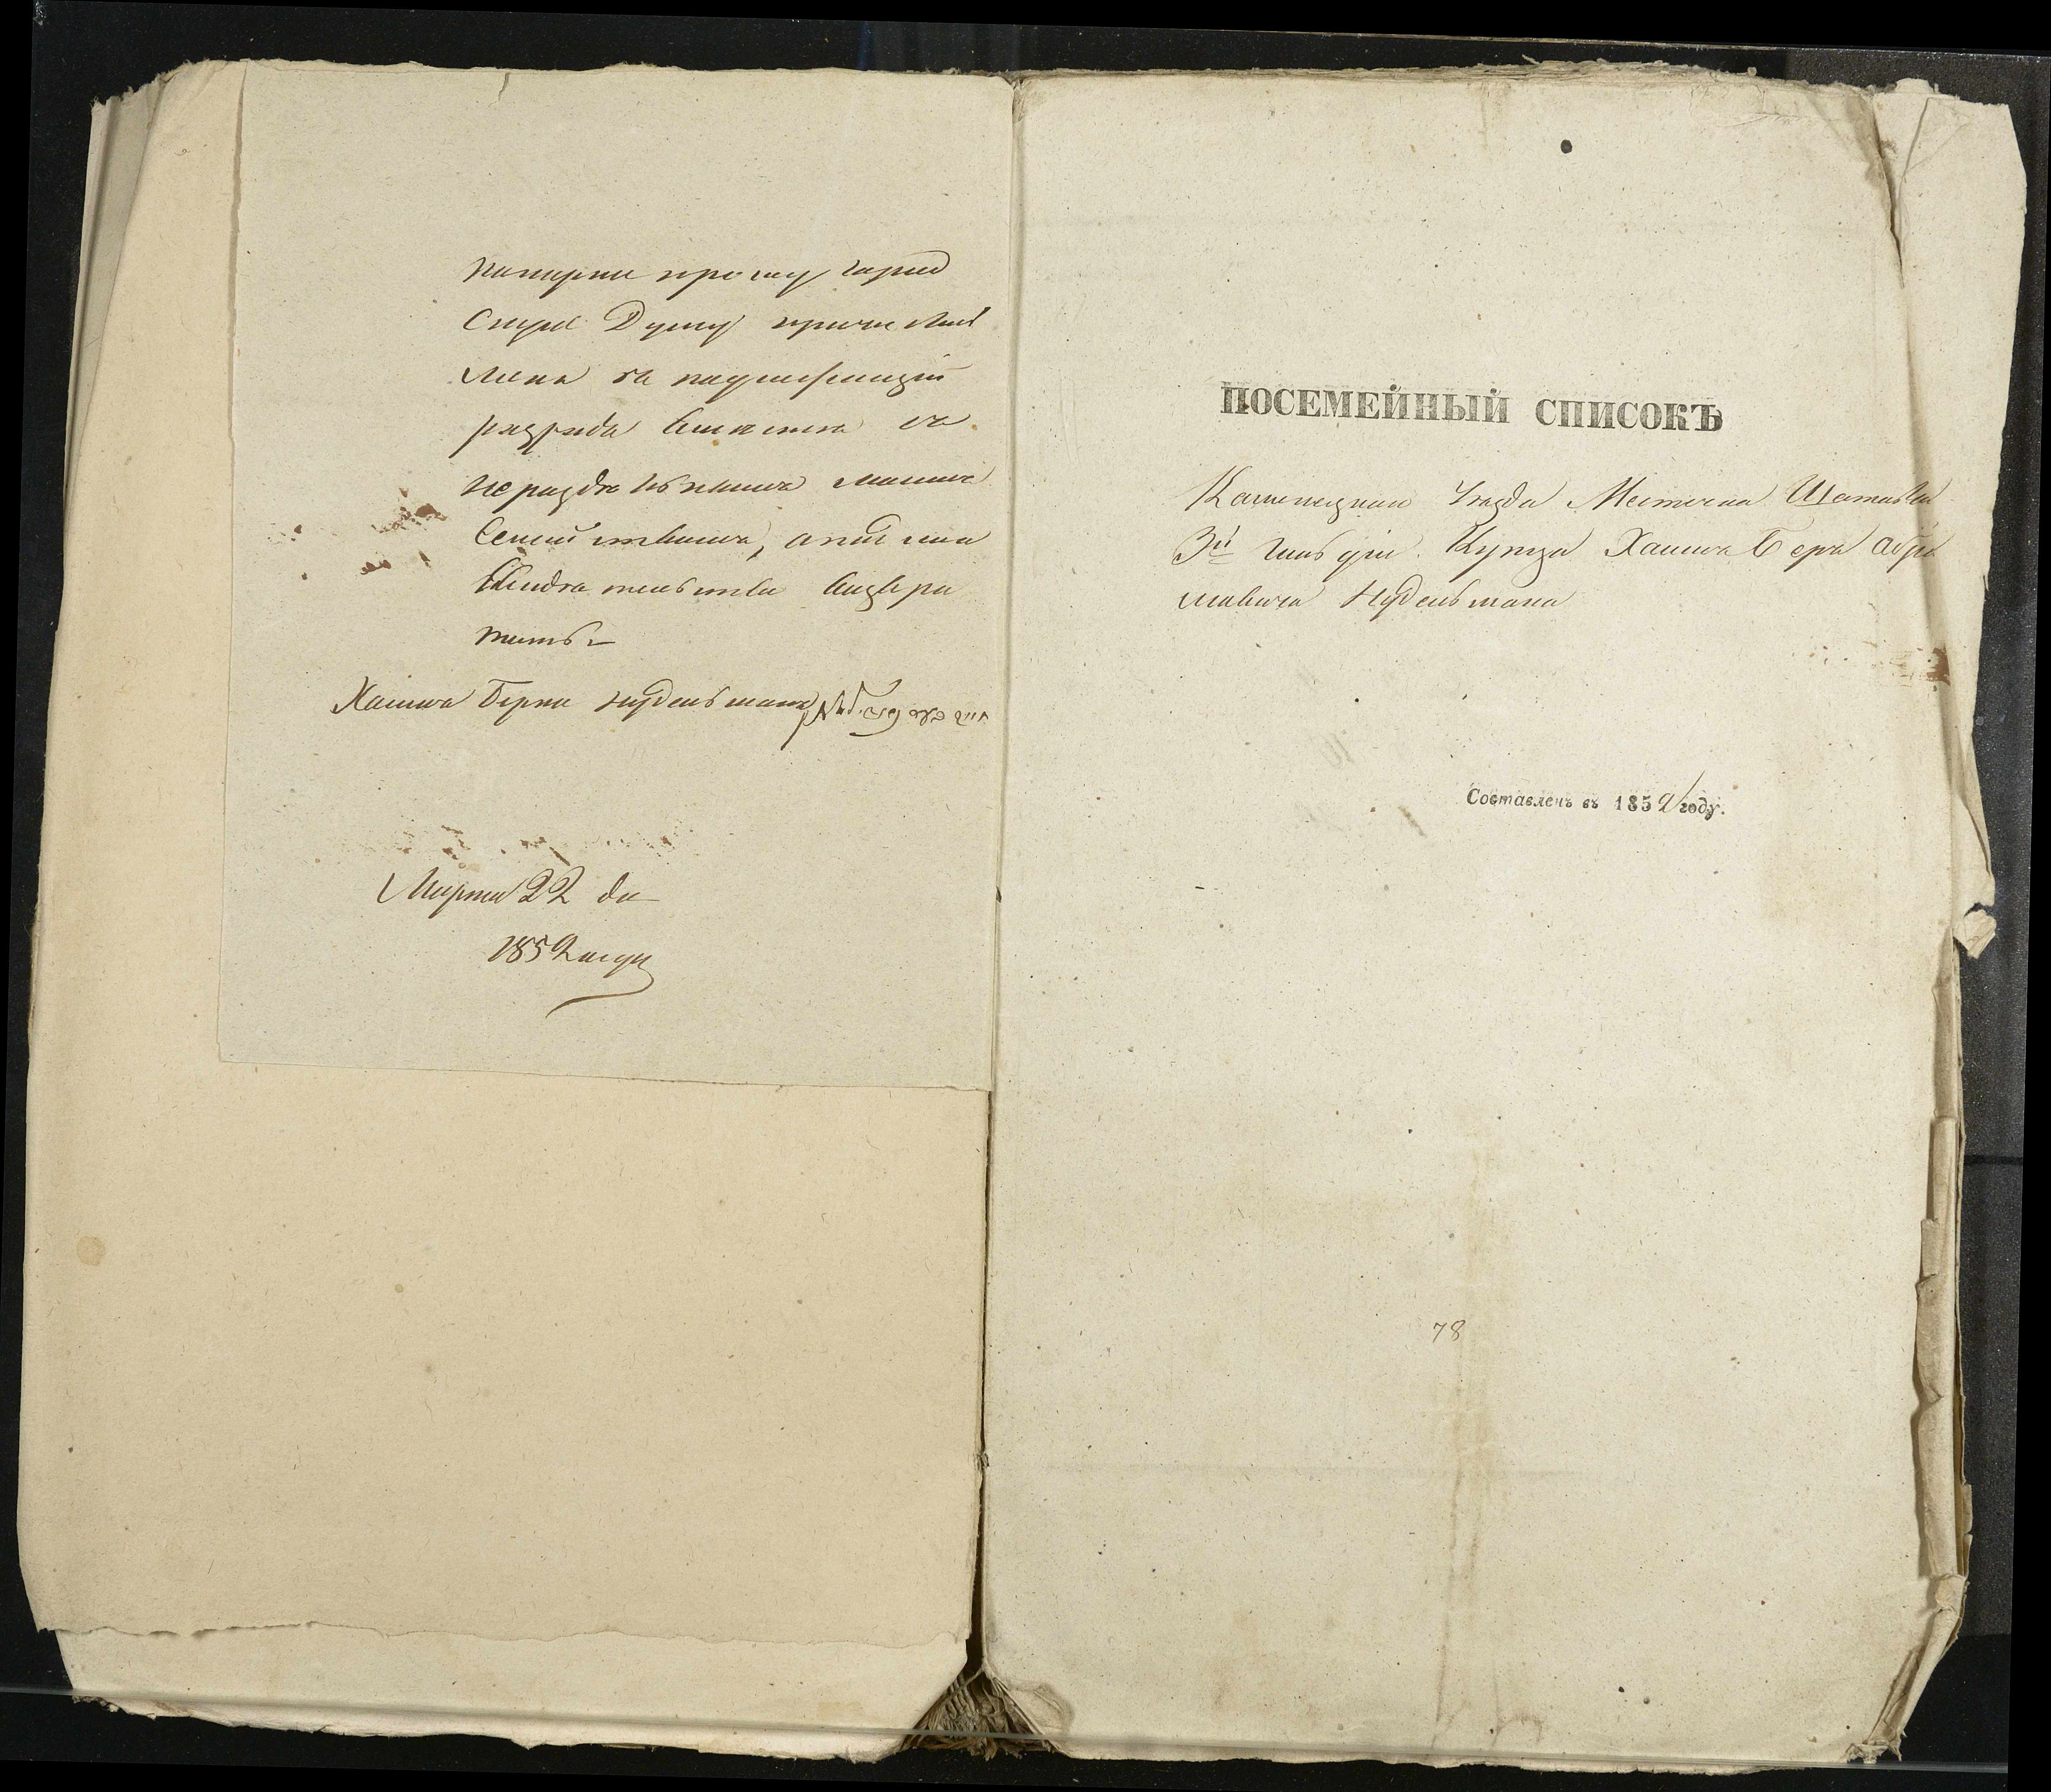 покорно прошу Город
скую Думу причислить
меня къ надлежащій
разряда вместе съ
нераздельнымъ моимъ
Семействомъ, а поіменна
Свидетельства возвра
тить.
Хаимъ Берко Нудельманъ
Марта 22 дн
1852 году
ПОСЕМЕЙНЫЙ СПИСОКЪ
Каменецкаго Уезда Местечка Шатавы
3й гильдіи Купца Хаима Бера Абра
мовича Нудельмана
Составленъ въ 1852 году.
78